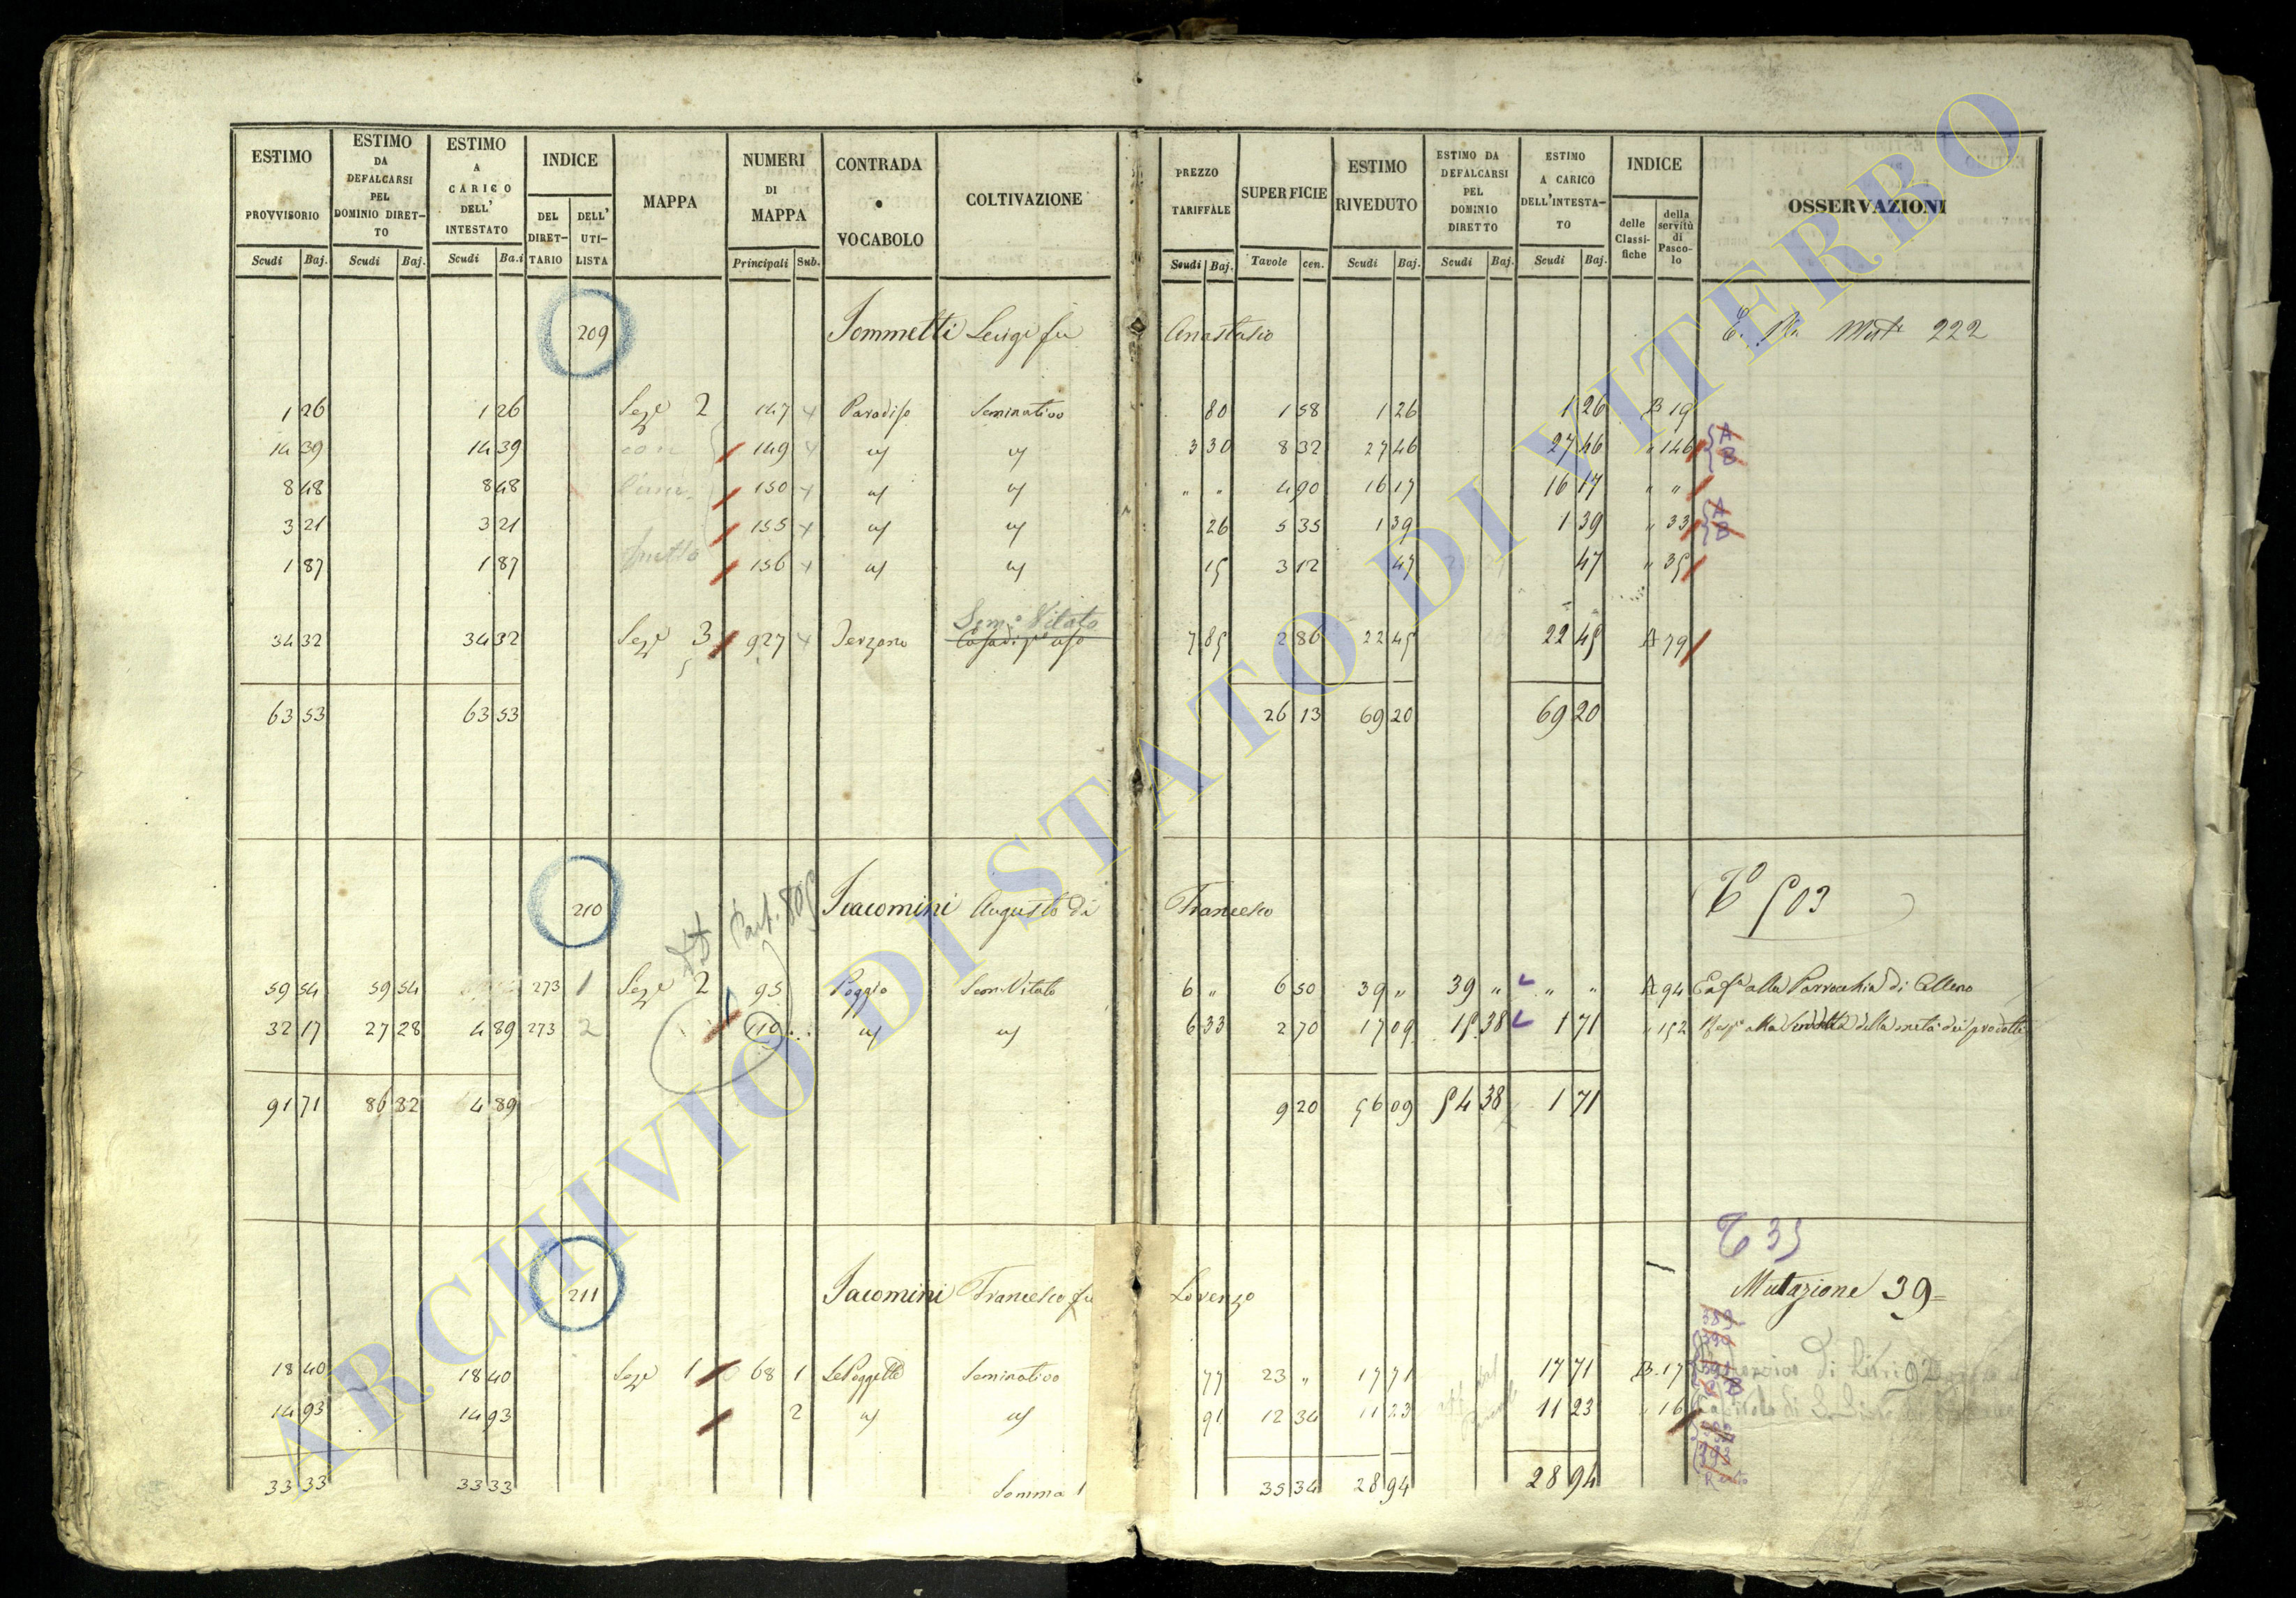 ESTIMO PROVVISORIO Scudi Baj. ESTIMO DA DEFALCARSI PEL DOMINIO DIRETTO Scudi Baj. ESTIMO A CARICO DELL' INTESTATO Scudi Ba.i INDICE DEL DIRETTARIO DELL' UTILISTA MAPPA NUMERI DI MAPPA Principali Sub. CONTRADA o VOCABOLO COLTIVAZIONE PREZZO TARIFFALE Scudi Baj. SUPERFICIE Tavole cen. ESTIMO RIVEDUTO Scudi Baj. ESTIMO DA DEFALCARSI PEL DOMINIO DIRETTO Scudi Baj. ESTIMO A CARICO DELL'INTESTATO Scudi Baj. INDICE delle Classifiche della servitù di Pascolo OSSERVAZIONI
209 Iommetti Luigi fu Anastasio 222
1 26 1 26 Seze 2 147 Paradiso Seminativo 80 1 58 1 26 1 26 B 19
14 39 14 39 149 3 30 8 32 27 46 27 46 " 146 A B
8 48 8 48 150 " " 4 90 16 17 16 17 " "
3 21 3 21 155 26 5 35 1 39 1 39 " 33 A B
1 87 1 87 156 15 3 12 47 47 " 35
Sem. Vitato
34 32 34 32 Seze 3 927 7 85 2 86 22 45 22 45 A 79
63 53 63 53 26 13 69 20 69 20
210 Iacomini Augusto di Francesco 503
Part.
59 54 59 54 273 1 Seze 2 95 Poggio Sem. Vitato 6 " 6 50 39 " 39 " " " A 94 alla Parrocchia di Celleno
32 17 27 28 4 89 273 2 110 6 33 2 70 17 09 15 38 1 71 " 152 alla della metà dei prodotti
91 71 86 82 4 89 9 20 56 09 54 38 1 71
35
211 Iacomini Francesco fu Lorenzo Mutazione 39
18 40 18 40 Seze 1 68 1 Le Poggette Seminativo 77 23 " 17 71 17 71 B 17
14 93 14 93 2 91 12 34 11 23 11 23 " 16
33 33 33 33 Somma 35 34 28 94 28 94
ARCHIVIO DI STATO DI VITERBO